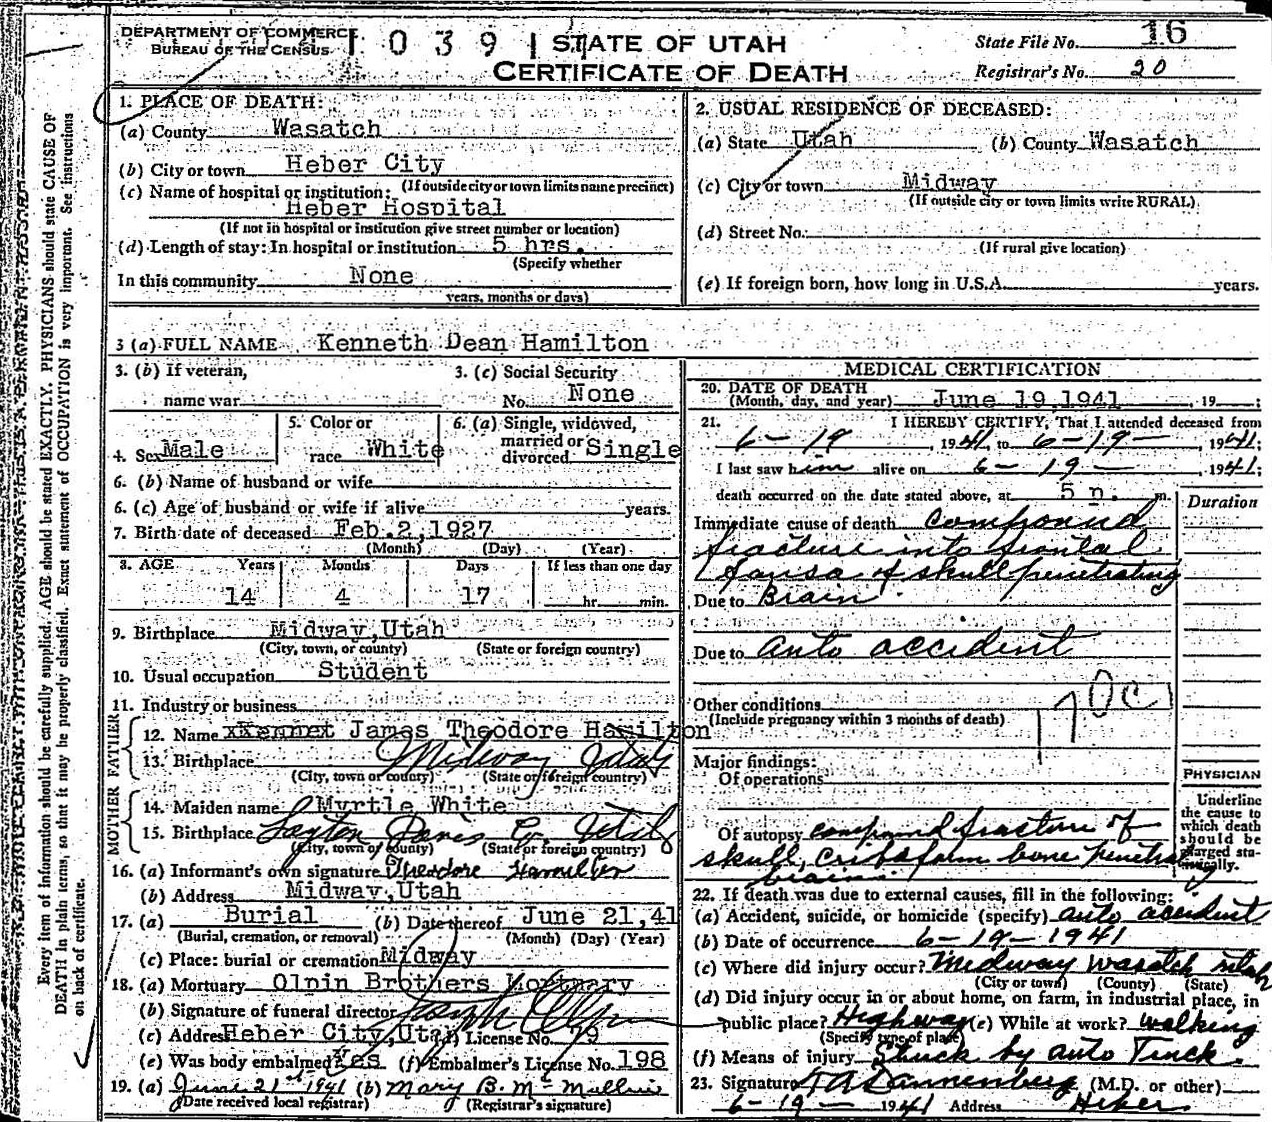 DEPARTMENT OF COMMERCE
BUREAU OF THE CENSUS
1 0 3 9 1
STATE OF UTAH
CERTIFICATE OF DEATH
State File No. 16
Registrar's No. 20
Every item of information should be carefully supplied. AGE should be stated EXACTLY. PHYSICIANS should state CAUSE OF
DEATH in plain terms, so that it may be properly classified. Exact statement of OCCUPATION is very important. See instructions
on back of certificate.
1. PLACE OF DEATH:
(a) County Wasatch
(b) City or town Heber City
(If outside city or town limits name precinct)
(c) Name of hospital or institution:
Heber Hospital
(If not in hospital or institution give street number or location)
(d) Length of stay: In hospital or institution 5 hrs.
(Specify whether
In this community None
years, months or days)
2. USUAL RESIDENCE OF DECEASED:
(a) State Utah (b) County Wasatch
(c) City or town Midway
(If outside city or town limits write RURAL)
(d) Street No.
(If rural give location)
(e) If foreign born, how long in U.S.A. years.
3 (a) FULL NAME Kenneth Dean Hamilton
3. (b) If veteran,
name war
3. (c) Social Security
No. None
4. Sex Male
5. Color or
race White
6. (a) Single, widowed,
married or
divorced Single
6. (b) Name of husband or wife
6. (c) Age of husband or wife if alive years.
7. Birth date of deceased Feb.2,1927
(Month) (Day) (Year)
8. AGE Years Months Days If less than one day
14 4 17 hr. min.
9. Birthplace Midway,Utah
(City, town, or county) (State or foreign country)
10. Usual occupation Student
11. Industry or business
FATHER
12. Name James Theodore Hamilton
13. Birthplace Midway Utah
(City, town or county) (State or foreign country)
MOTHER
14. Maiden name Myrtle White
15. Birthplace Layton Davis Co. Utah
(City, town or county) (State or foreign country)
16. (a) Informant's own signature Theodore Hamilton
(b) Address Midway,Utah
17. (a) Burial (b) Date thereof June 21,41
(Burial, cremation, or removal) (Month) (Day) (Year)
(c) Place: burial or cremation Midway
18. (a) Mortuary Olpin Brothers Mortuary
(b) Signature of funeral director
(c) Address Heber City,Utah (d) License No. 79
(e) Was body embalmed? Yes (f) Embalmer's License No. 198
19. (a) June 21st 1941 (b) Mary B. Mc Mullin
(Date received local registrar) (Registrar's signature)
MEDICAL CERTIFICATION
20. DATE OF DEATH
(Month, day, and year) June 19,1941 , 19 ;
21. I HEREBY CERTIFY, That I attended deceased from
6-19 1941 to 6-19- 1941;
I last saw him alive on 6-19- 1941;
death occurred on the date stated above, at 5 p. m.
Duration
Immediate cause of death compound
fracture into frontal
fausa of skull penetrating
Due to Brain.
Due to auto accident
Other conditions
(Include pregnancy within 3 months of death)
170c
Major findings:
Of operations
Of autopsy compound fracture of
skull, cribaform bone penetrat
brain.
PHYSICIAN
Underline
the cause to
which death
should be
charged sta-
tistically.
22. If death was due to external causes, fill in the following:
(a) Accident, suicide, or homicide (specify) auto accident
(b) Date of occurrence 6-19-1941
(c) Where did injury occur? Midway Wasatch Utah
(City or town) (County) (State)
(d) Did injury occur in or about home, on farm, in industrial place, in
public place? Highway (e) While at work? walking
(Specify type of place)
(f) Means of injury Struck by auto Truck.
23. Signature T A Dannenberg (M.D. or other)
6-19- 1941 Address Heber